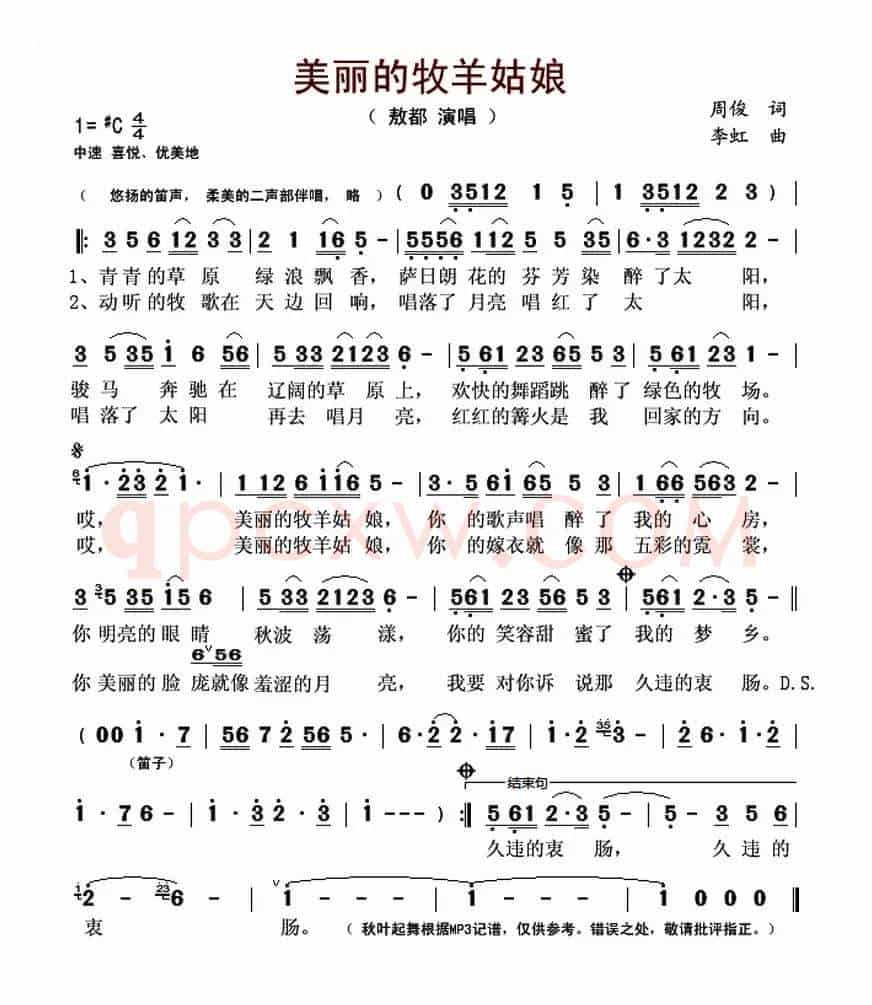 美丽的牧羊姑娘
（ 敖都 演唱 ）
周俊 词
1= #C 4/4
李虹 曲
中速 喜悦、优美地
（ 悠扬的笛声， 柔美的二声部伴唱， 略 ） ( 0 3512 1 5 | 1 3512 3 2 3 )
‖: 3 5 6 12 3 3 | 2 1 116 5 - | 5556 112 5 35 | 6·3 1232 2 - |
1、青青的草 原 绿 浪 飘 香， 萨日朗 花的 芬 芳 染 醉 了 太 阳，
2、动听的牧 歌在 天 边 回 响， 唱落了 月亮 唱 红 了 太 阳，
3 5 35 1 6 56 | 5 33 2123 6 - | 5 61 23 65 53 | 5 61 23 1 - |
骏 马 奔 驰 在 辽阔的草 原 上， 欢快的舞蹈跳 醉 了 绿色的牧 场。
唱 落 了 太 阳 再去 唱月 亮， 红红的篝火是 我 回家的方 向。
6 1·23 2 1· | 1 12 6 116 5 - | 3· 5 61 65 3 | 1 66 563 2 - |
哎， 美丽的牧羊姑 娘， 你 的歌声唱 醉 了 我的 心 房，
哎， 美丽的牧羊姑 娘， 你 的嫁衣就 像 那 五彩的霓 裳，
qpcxw.COM
3 3 5 35 15 6 | 5 33 2123 6 - | 561 23 56 5 | 561 2·3 5 - ‖
你 明亮的 眼 睛 秋波 荡 漾， 你的 笑容甜 蜜了 我的 梦 乡。
6 56
你 美丽的 脸 庞就像 羞涩的月 亮， 我要 对你诉 说那 久违的衷 肠。D.S.
( 00 1 · 7 | 56 7 2 56 5 · | 6·2 2·17 | 1·2 35 3 - | 2 6·1·2 |
（笛子）
结束句
1·7 6 - | 1·3 2·3 | 1 - - - ) :‖ 5 61 2·3 5 - | 5 - 3 5 6 |
久违的衷 肠， 久 违 的
1 2 - - 23 6 - | 1 - - - | 1 - - - | 1 0 0 0 ‖
衷 肠。 （ 秋叶起舞根据MP3记谱，仅供参考。错误之处，敬请批评指正。）